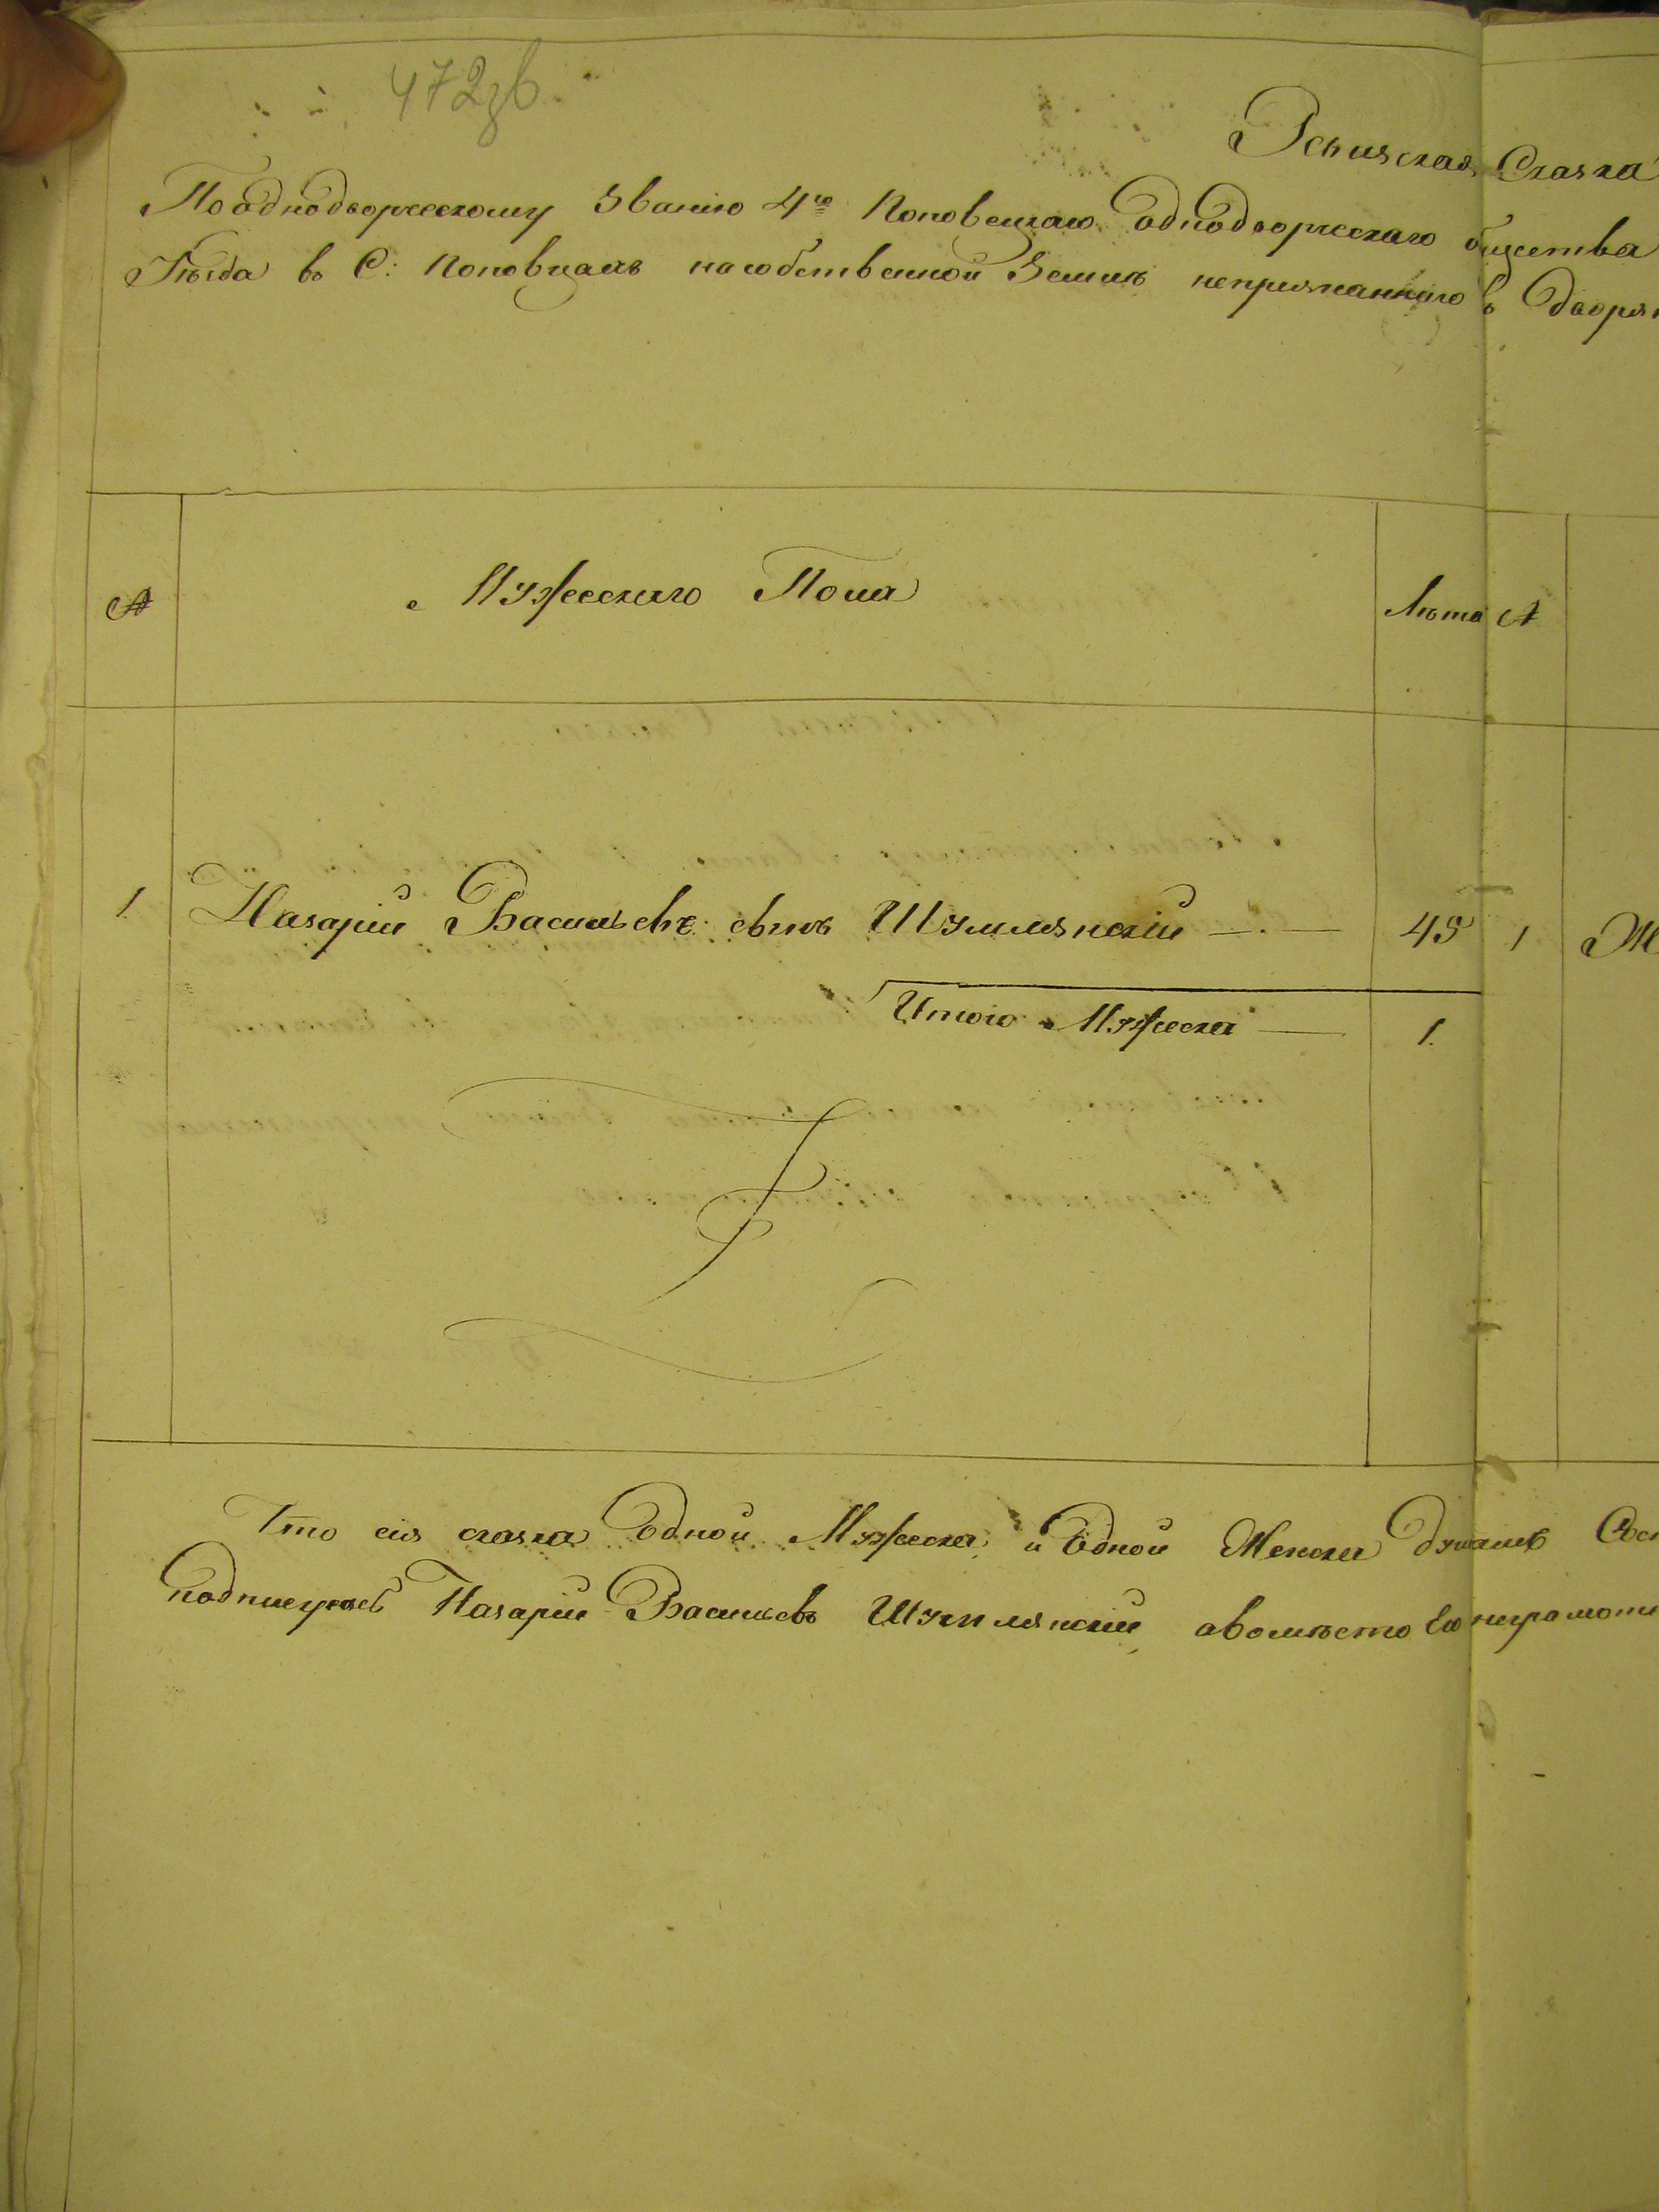 472зв
Ревизская Сказка
По однодворческому Званію 4го Поповецкаго однодворческаго общества
Уѣзда въ С: Поповцахъ на собственной Землѣ непризнаннаго въ дворян
№ Мужескаго Пола Лѣта №
1. Назарій Васильевъ сынъ Шумлянскій 45 1
Итого Мужеска 1.
Что сія сказка Одной Мужеска и Одной Женска душахъ Сос
подписуюсь Назарій Васильевъ Шумлянскій авомѣсто Его неграмотн